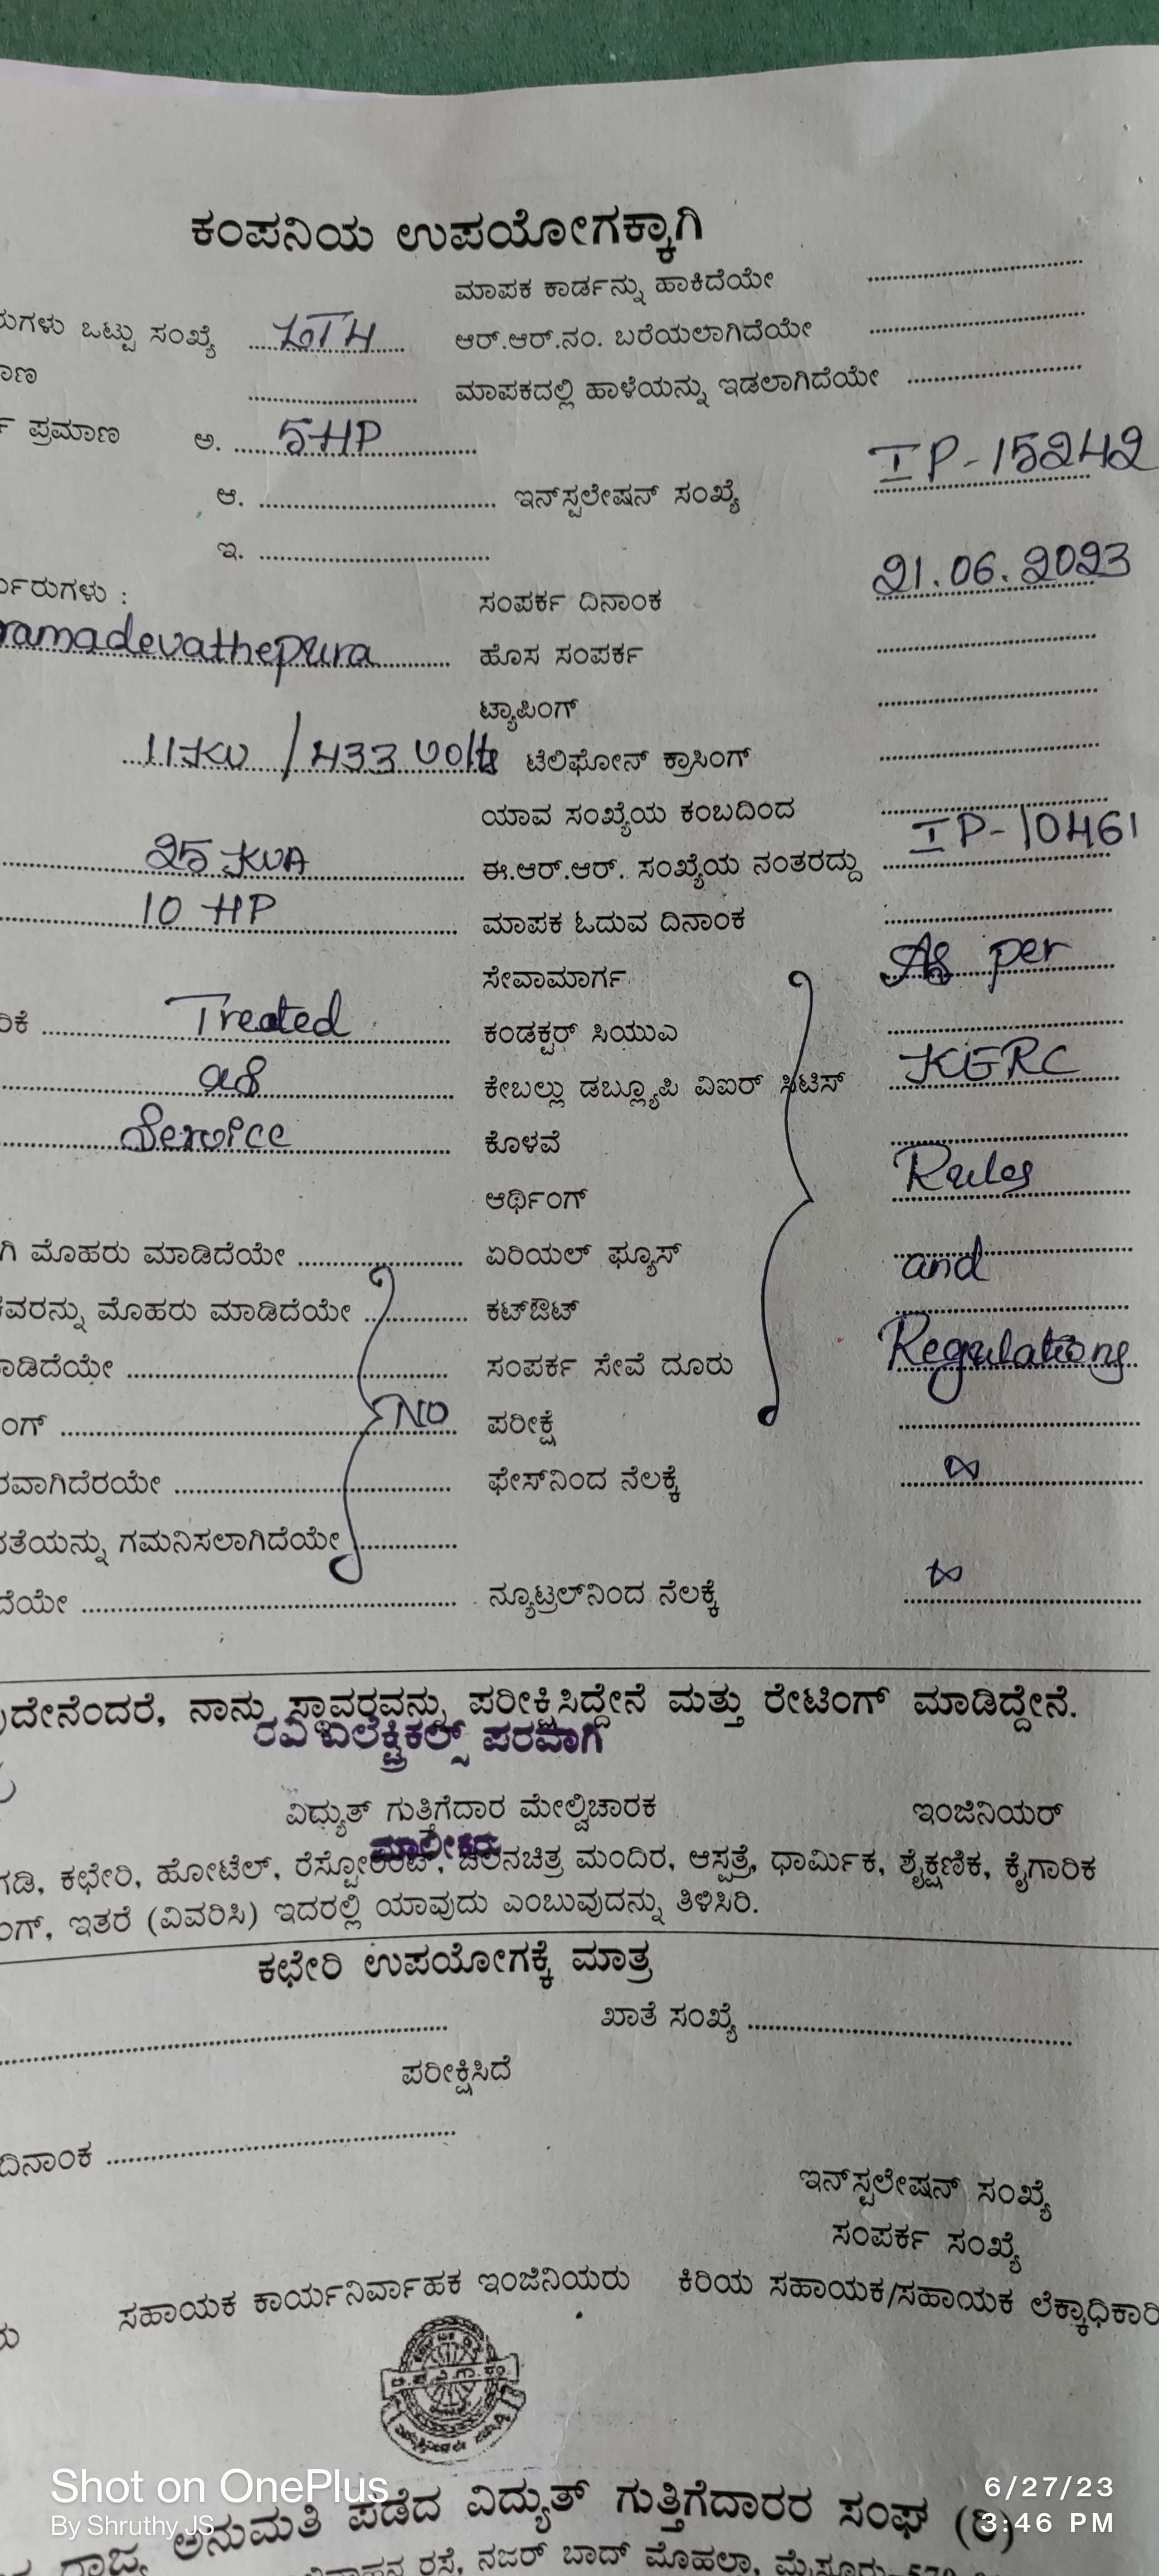 ಕಂಪನಿಯ ಉಪಯೋಗಕ್ಕಾಗಿ
ಮಾಪಕ ಕಾರ್ಡನ್ನು ಹಾಕಿದೆಯೇ
ರುಗಳು ಒಟ್ಟು ಸಂಖ್ಯೆ ಆರ್.ಆರ್.ನಂ. ಬರೆಯಲಾಗಿದೆಯೇ
ಮಾಪಕದಲ್ಲಿ ಹಾಳೆಯನ್ನು ಇಡಲಾಗಿದೆಯೇ
ಪ್ರಮಾಣ ಅ. 5HP
ಆ. ಇನ್‌ಸ್ಟಲೇಷನ್ ಸಂಖ್ಯೆ IP-15242
ಇ.
ರುಗಳು : ಸಂಪರ್ಕ ದಿನಾಂಕ 21.06.2023
ramadevathepura ಹೊಸ ಸಂಪರ್ಕ
ಟ್ಯಾಪಿಂಗ್
11KV / 433 Volts ಟೆಲಿಫೋನ್ ಕ್ರಾಸಿಂಗ್
ಯಾವ ಸಂಖ್ಯೆಯ ಕಂಬದಿಂದ
25 KVA ಈ.ಆರ್.ಆರ್. ಸಂಖ್ಯೆಯ ನಂತರದ್ದು IP-10461
10 HP ಮಾಪಕ ಓದುವ ದಿನಾಂಕ
ಸೇವಾಮಾರ್ಗ As per
ರಿಕೆ Treated ಕಂಡಕ್ಟರ್ ಸಿಯುಎ
as ಕೇಬಲ್ಲು ಡಬ್ಲ್ಯೂಪಿ ವಿಐರ್ ಸಿಟಿಸ್ KERC
Service ಕೊಳವೆ
ಆರ್ಥಿಂಗ್ Rules
ಗಿ ಮೊಹರು ಮಾಡಿದೆಯೇ ಏರಿಯಲ್ ಫ್ಯೂಸ್ and
ಕವರನ್ನು ಮೊಹರು ಮಾಡಿದೆಯೇ ಕಟ್‌ಔಟ್
ಾಡಿದೆಯೇ ಸಂಪರ್ಕ ಸೇವೆ ದೂರು Regulations
ಂಗ್ NO ಪರೀಕ್ಷೆ
ರವಾಗಿದೆರಯೇ ಫೇಸ್‌ನಿಂದ ನೆಲಕ್ಕೆ
ತೆಯನ್ನು ಗಮನಿಸಲಾಗಿದೆಯೇ
ದೆಯೇ ನ್ಯೂಟ್ರಲ್‌ನಿಂದ ನೆಲಕ್ಕೆ
ದೇನೆಂದರೆ, ನಾನು ಸ್ಥಾವರವನ್ನು ಪರೀಕ್ಷಿಸಿದ್ದೇನೆ ಮತ್ತು ರೇಟಿಂಗ್ ಮಾಡಿದ್ದೇನೆ.
ರವಿ ಎಲೆಕ್ಟ್ರಿಕಲ್ಸ್ ಪರವಾಗಿ
ವಿದ್ಯುತ್ ಗುತ್ತಿಗೆದಾರ ಮೇಲ್ವಿಚಾರಕ ಇಂಜಿನಿಯರ್
ಮಾಲೀಕರು
ಗಡಿ, ಕಛೇರಿ, ಹೋಟೆಲ್, ರೆಸ್ಟೋರೆಂಟ್, ಚಲನಚಿತ್ರ ಮಂದಿರ, ಆಸ್ಪತ್ರೆ, ಧಾರ್ಮಿಕ, ಶೈಕ್ಷಣಿಕ, ಕೈಗಾರಿಕ
ಂಗ್, ಇತರೆ (ವಿವರಿಸಿ) ಇದರಲ್ಲಿ ಯಾವುದು ಎಂಬುವುದನ್ನು ತಿಳಿಸಿರಿ.
ಕಛೇರಿ ಉಪಯೋಗಕ್ಕೆ ಮಾತ್ರ
ಖಾತೆ ಸಂಖ್ಯೆ
ಪರೀಕ್ಷಿಸಿದೆ
ದಿನಾಂಕ
ಇನ್‌ಸ್ಟಲೇಷನ್ ಸಂಖ್ಯೆ
ಸಂಪರ್ಕ ಸಂಖ್ಯೆ
ಸಹಾಯಕ ಕಾರ್ಯನಿರ್ವಾಹಕ ಇಂಜಿನಿಯರು ಕಿರಿಯ ಸಹಾಯಕ/ಸಹಾಯಕ ಲೆಕ್ಕಾಧಿಕಾರಿ
Shot on OnePlus
By Shruthy JS
6/27/23
3:46 PM
ರಾಜ್ಯ ಅನುಮತಿ ಪಡೆದ ವಿದ್ಯುತ್ ಗುತ್ತಿಗೆದಾರರ ಸಂಘ (ರಿ)
ರಸ್ತೆ, ನಜರ್ ಬಾದ್ ಮೊಹಲ್ಲಾ, ಮೈಸೂರು-570